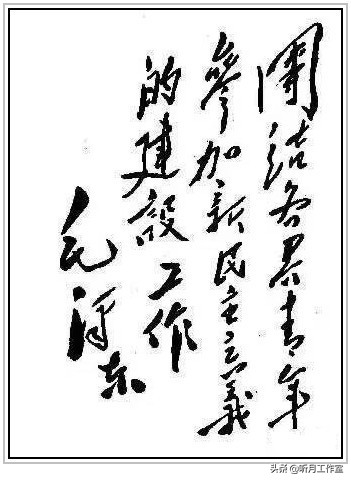 團结各界青年
参加新民主主義
的建設工作
毛泽东
头条@听月工作室